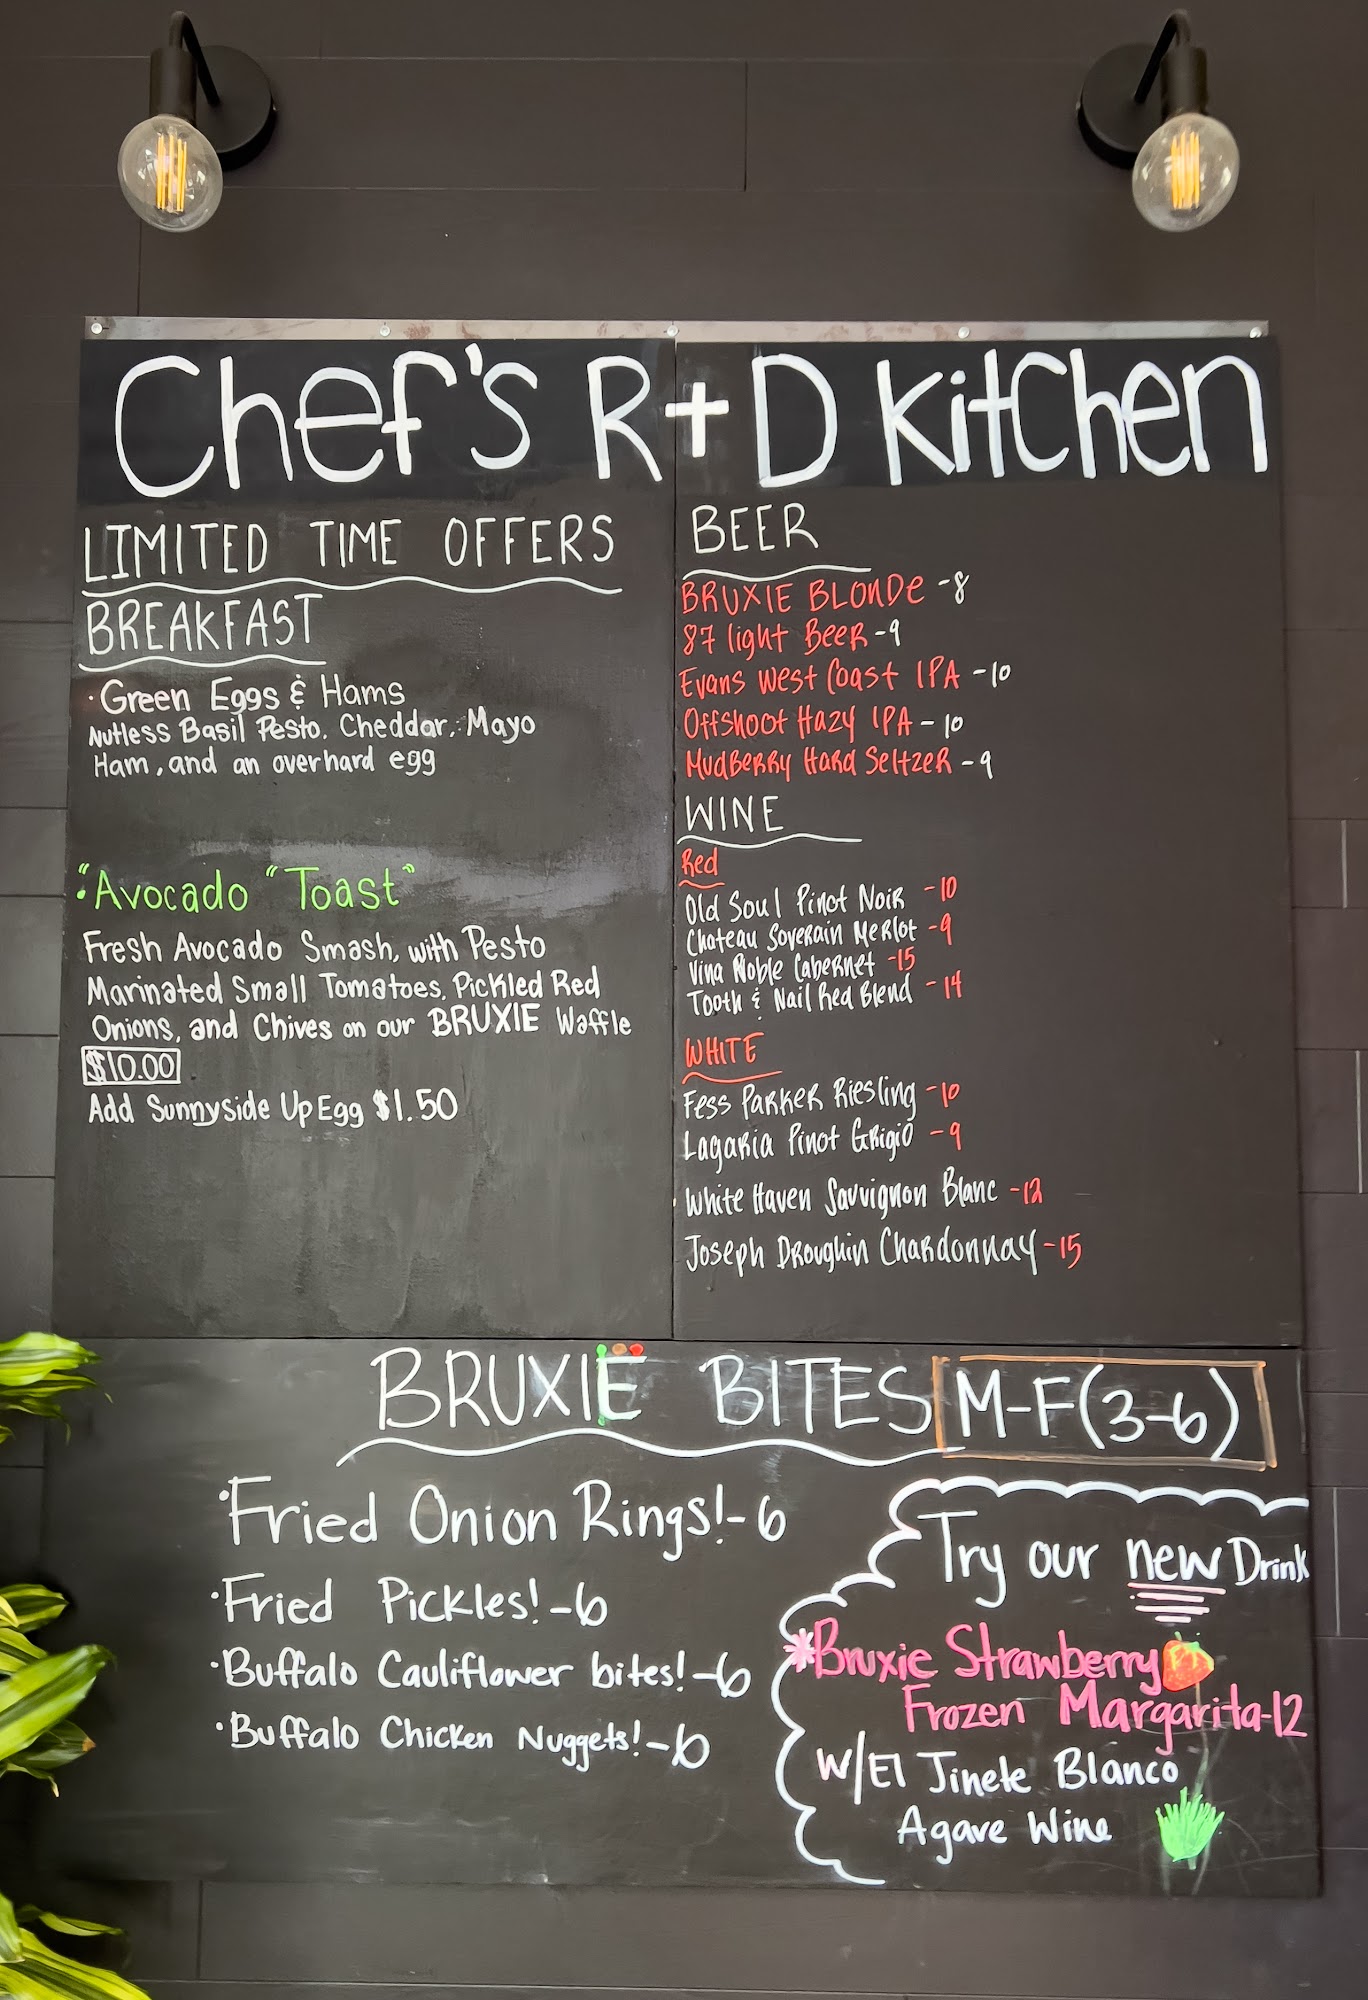 Chef's R+D Kitchen
LIMITED TIME OFFERS
BREAKFAST
·Green Eggs & Hams
Nutless Basil Pesto, Cheddar, Mayo
Ham, and an overhard egg
·"Avocado "Toast"
Fresh Avocado Smash, with Pesto
Marinated Small Tomatoes, Pickled Red
Onions, and Chives on our BRUXIE Waffle
$10.00
Add Sunnyside Up Egg $1.50
BEER
BRUXIE BLONDE -8
87 light Beer -9
Evans West Coast IPA -10
Offshoot Hazy IPA - 10
MudBerry Hard Seltzer - 9
WINE
Red
Old Soul Pinot Noir -10
Chateau Soverain Merlot -9
Vina Noble Cabernet -15
Tooth & Nail Red Blend - 14
WHITE
Fess Parker Riesling -10
Lagaria Pinot Grigio - 9
White Haven Sauvignon Blanc -12
Joseph Droughin Chardonnay -15
BRUXIE BITES M-F(3-6)
·Fried Onion Rings!-6
·Fried Pickles!-6
·Buffalo Cauliflower bites!-6
·Buffalo Chicken Nuggets!-6
Try our new Drink
*Bruxie Strawberry
Frozen Margarita-12
W/El Jinete Blanco
Agave Wine